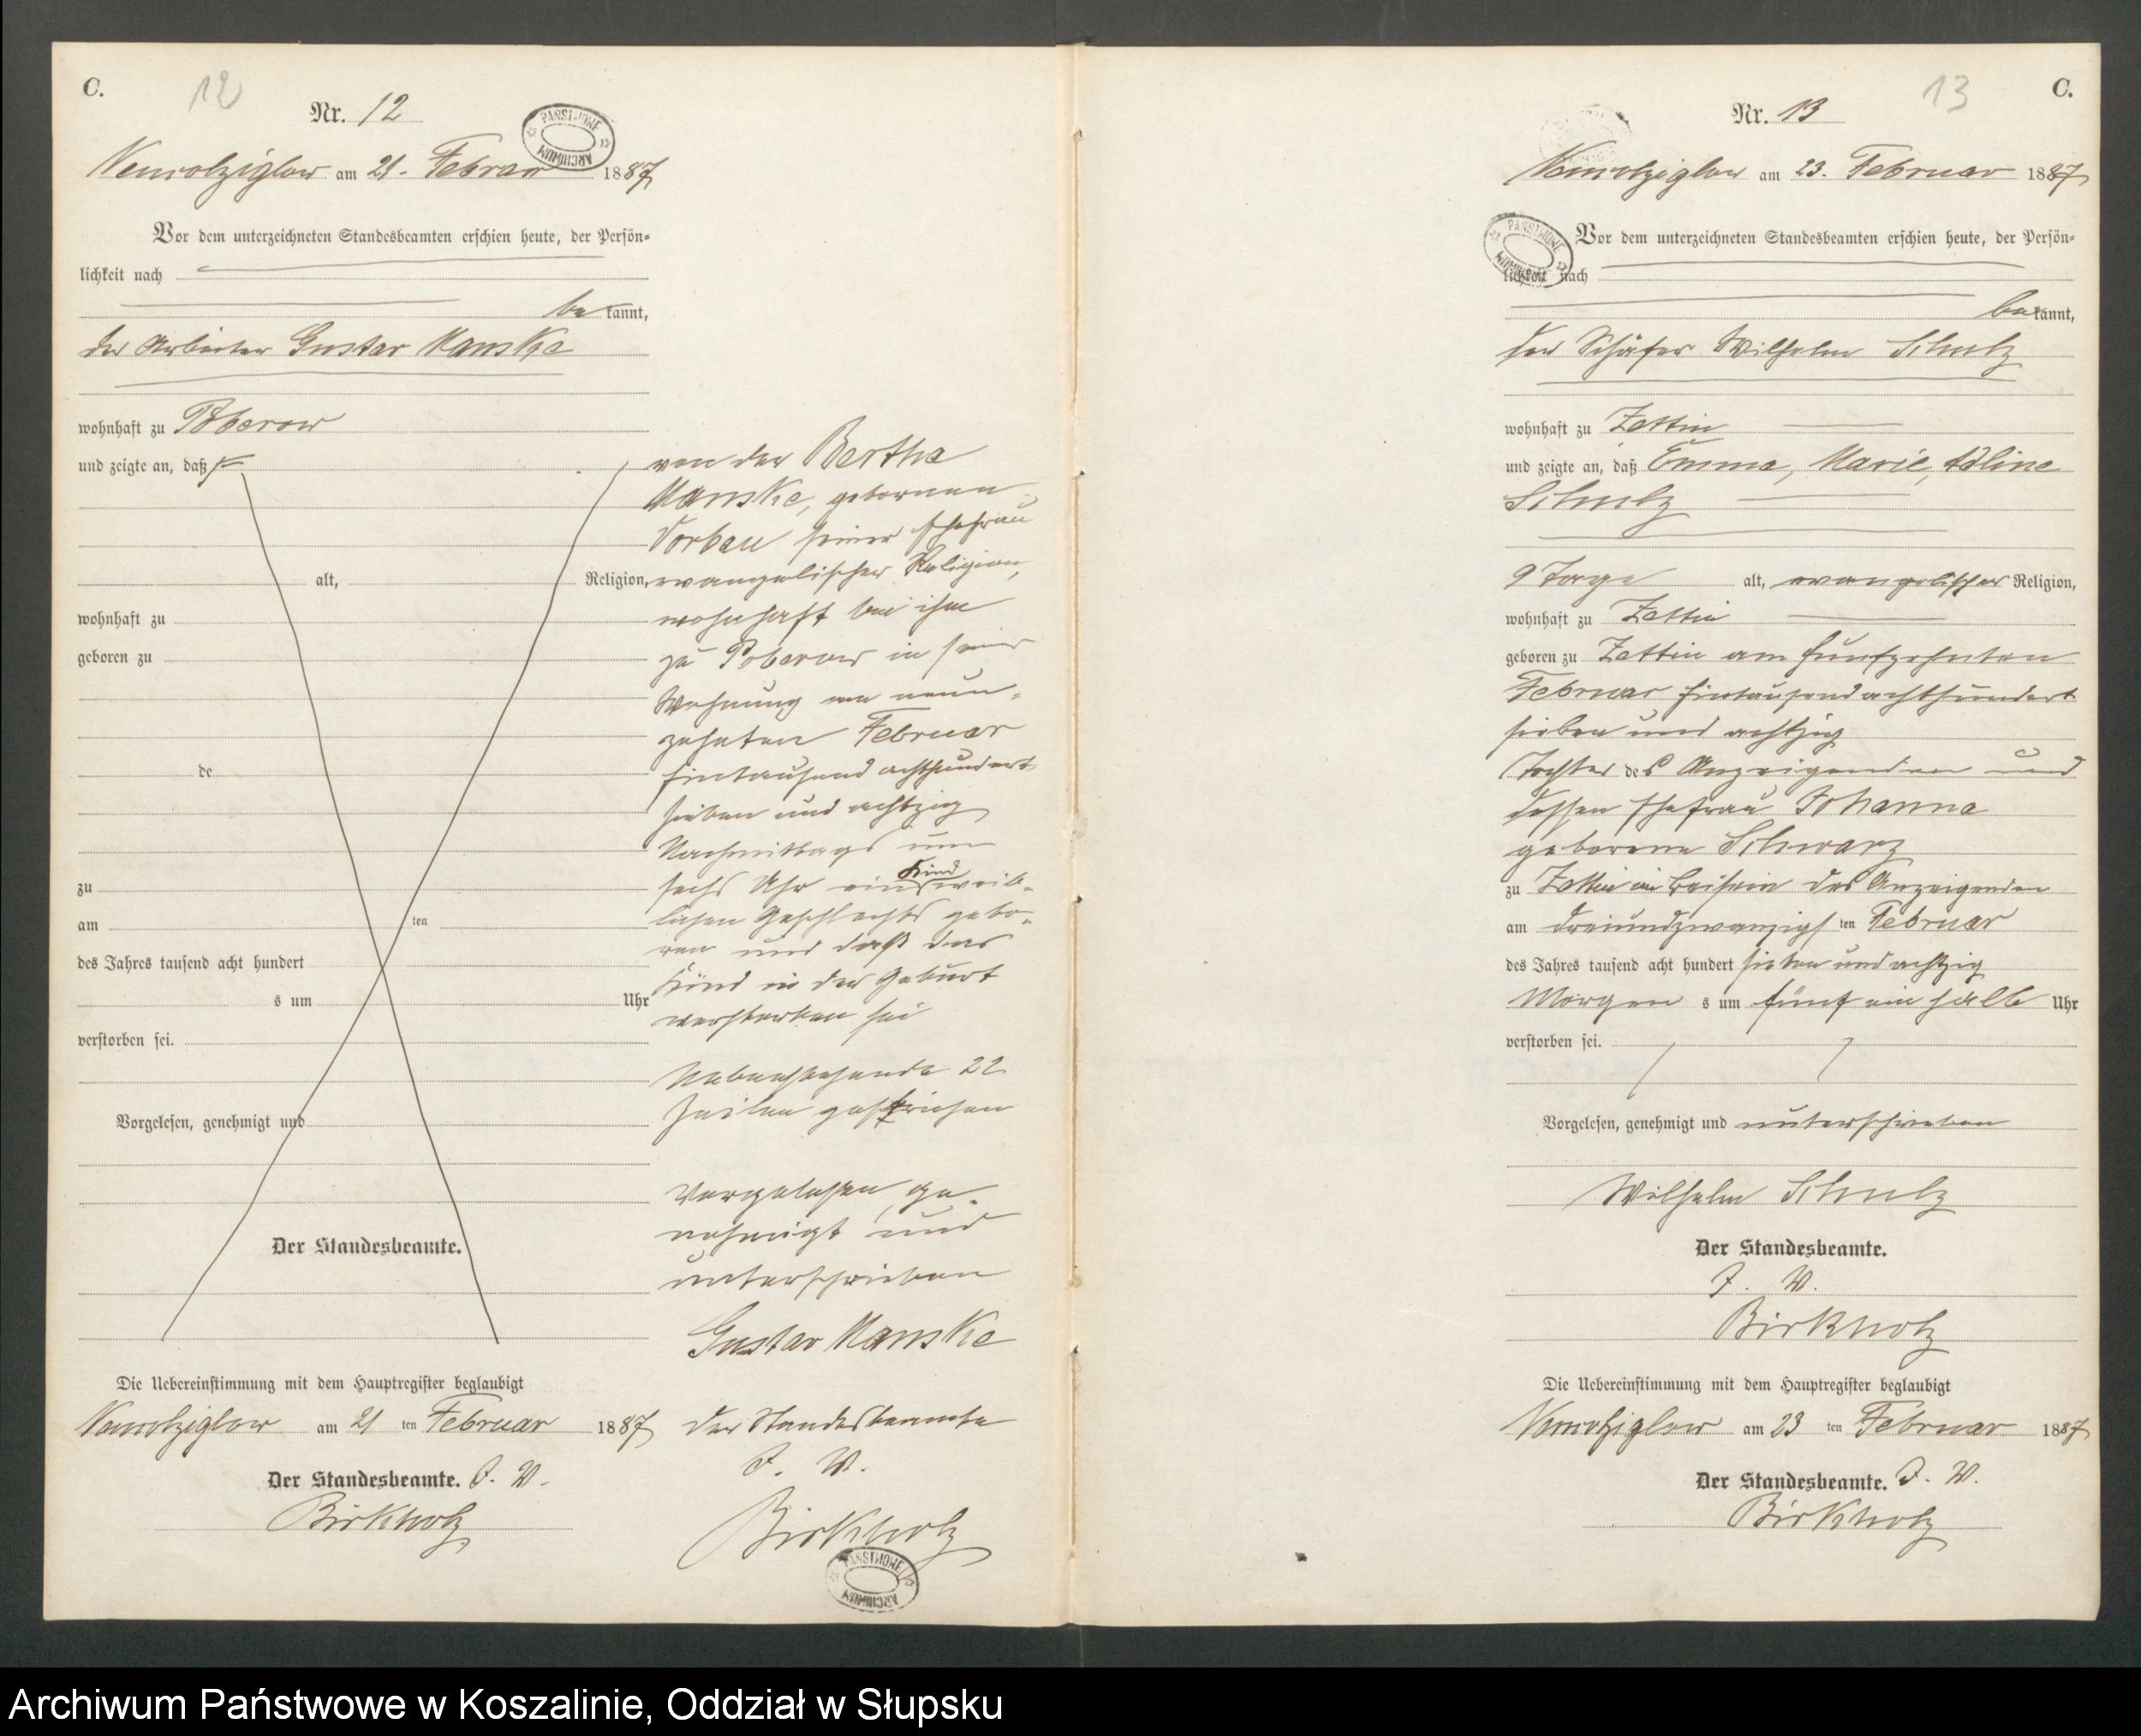 C.
12
Nr. 12
PAŃSTWOWE ARCHIWUM
am 21. Februar 1887
Vor dem unterzeichneten Standesbeamten erschien heute, der Persön-
lichkeit nach
be kannt,
der Arbeiter Gustav Manske
wohnhaft zu Poberow
und zeigte an, daß
alt, Religion,
wohnhaft zu
geboren zu
de
zu
am ten
des Jahres tausend acht hundert
s um Uhr
verstorben sei.
Vorgelesen, genehmigt und
Der Standesbeamte.
Die Uebereinstimmung mit dem Hauptregister beglaubigt
am 21 ten Februar 1887
Der Standesbeamte. J. V.
Birkholz
von der Bertha
Manske, gebornen
seiner Ehefrau
evangelischer Religion,
wohnhaft bei ihm
zu Poberow in seiner
Wohnung am neun-
zehnten Februar
Eintausend achthundert
sieben und achtzig
Nachmittags um
sechs Uhr ein Kind weib-
lichen Geschlechts gebo-
ren und daß das
Kind in der Geburt
verstorben sei
Nebenstehende 22
Zeilen gestrichen
Vorgelesen, ge-
nehmigt und
unterschrieben
Gustav Manske
Der Standesbeamte
J. V.
Birkholz
PAŃSTWOWE ARCHIWUM
13
C.
Nr. 13
am 23. Februar 1887
PAŃSTWOWE ARCHIWUM
Vor dem unterzeichneten Standesbeamten erschien heute, der Persön-
lichkeit nach
be kannt,
der Schäfer Wilhelm Schulz
wohnhaft zu Zettin
und zeigte an, daß Emma, Marie, Adline
Schulz
9 Tage alt, evangelischer Religion,
wohnhaft zu Zettin
geboren zu Zettin am fünfzehnten
Februar Eintausend achthundert
sieben und achtzig
Tochter des Anzeigenden und
dessen Ehefrau Johanna
geborene Schwarz
zu Zettin im Beisein des Anzeigenden
am dreiundzwanzigs ten Februar
des Jahres tausend acht hundert sieben und achtzig
Morgen s um fünf ein halb Uhr
verstorben sei.
Vorgelesen, genehmigt und unterschrieben
Wilhelm Schulz
Der Standesbeamte.
J. V.
Birkholz
Die Uebereinstimmung mit dem Hauptregister beglaubigt
am 23 ten Februar 1887
Der Standesbeamte. J. V.
Birkholz
Archiwum Państwowe w Koszalinie, Oddział w Słupsku